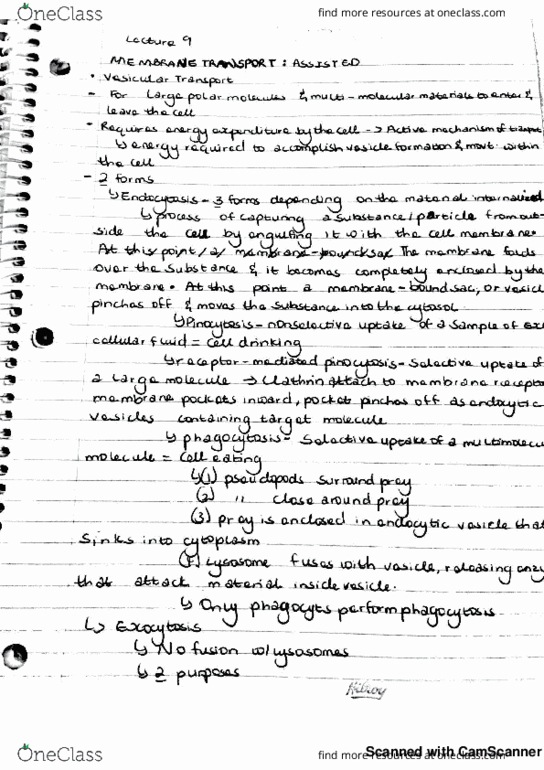 OneClass
find more resources at oneclass.com
Lecture 9
MEMBRANE TRANSPORT: ASSISTED
• Vesicular Transport
- For large polar molecules & multi-molecular materials to enter &
leave the cell
- Requires energy expenditure by the cell -> Active mechanism of
↳ energy required to accomplish vesicle formation & movt. within
the cell
- 2 forms
↳ Endocytosis - 3 forms depending on the material internalized
↳ process of capturing a substance/particle from out-
side the cell by engulfing it with the cell membrane.
At this point, a membrane-bound sac The membrane folds
over the substance & it becomes completely enclosed by the
membrane. At this point a membrane-bound sac, or vesicl
pinches off & moves the substance into the cytosol.
↳ Pinocytosis - nonselective uptake of a sample of ex
cellular fluid = Cell drinking
↳ receptor-mediated pinocytosis - Selective uptake of
a large molecule -> Clathrin attach to membrane recepto
membrane pockets inward, pocket pinches off as endocytic
vesicles containing target molecule
↳ phagocytosis - Selective uptake of a multimolecu
molecule = Cell eating
↳ (1) pseudopods surround prey
(2) " close around prey
(3) prey is enclosed in endocytic vesicle that
sinks into cytoplasm
lysosome fuses with vesicle, releasing enzy
that attack material inside vesicle.
↳ Only phagocyts perform phagocytosis
↳ Exocytosis
↳ No fusion w/ lysosomes
↳ 2 purposes
Hilroy
OneClass
find more resources at oneclass.com
Scanned with CamScanner